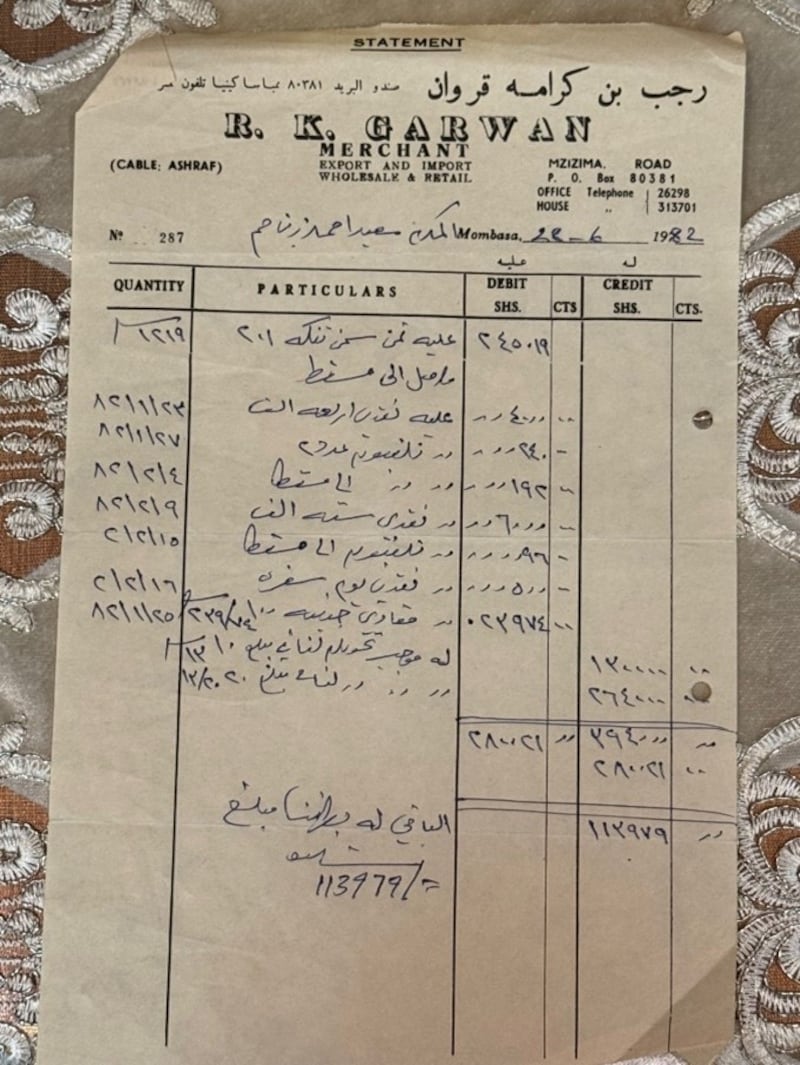 STATEMENT
رجب بن كرامه قروان صندو البريد ٨٠٣٨١ ممباسا كينيا تلفون نمبر
R. K. GARWAN
MERCHANT
EXPORT AND IMPORT
WHOLESALE & RETAIL
(CABLE: ASHRAF)
MZIZIMA. ROAD
P. O. Box 80381
OFFICE Telephone 26298
HOUSE ,, 313701
Nº 287 المكرم سعيد احمد Mombasa, 22-6 1982
عليه له
QUANTITY PARTICULARS DEBIT SHS. CTS CREDIT SHS. CTS.
١٢١٩ عليه ثمن سمن تنكه ٢٠١ ٢٤٥٠١٩
واصل الى مسقط
٨٢/١/٢٣ عليه نقدي اربعه الف ٤٠٠٠
٨٢/١/٢٧ تلفون عدد ٢ ٢٤٠
٨٢/٢/٤ الى مسقط ١٩٢
٨٢/٢/٩ نقدي سته الف ٦٠٠٠
٢/٢/١٥ تلفون الى مسقط ٩٦
٢/٢/١٦ نقدي يوم سفره ٥٠٠
٨٢/١/٢٥ ٢٣٩٧٤
له موجب تحويلم لنا في مبلغ ١٣٠٠٠٠
مبلغ ٢٦٤٠٠٠
٢٨٠٠٢١ ٣٩٤٠٠٠
٢٨٠٠٢١
١١٣٩٧٩
الباقي له بطرفنا مبلغ
شلن
113979/=